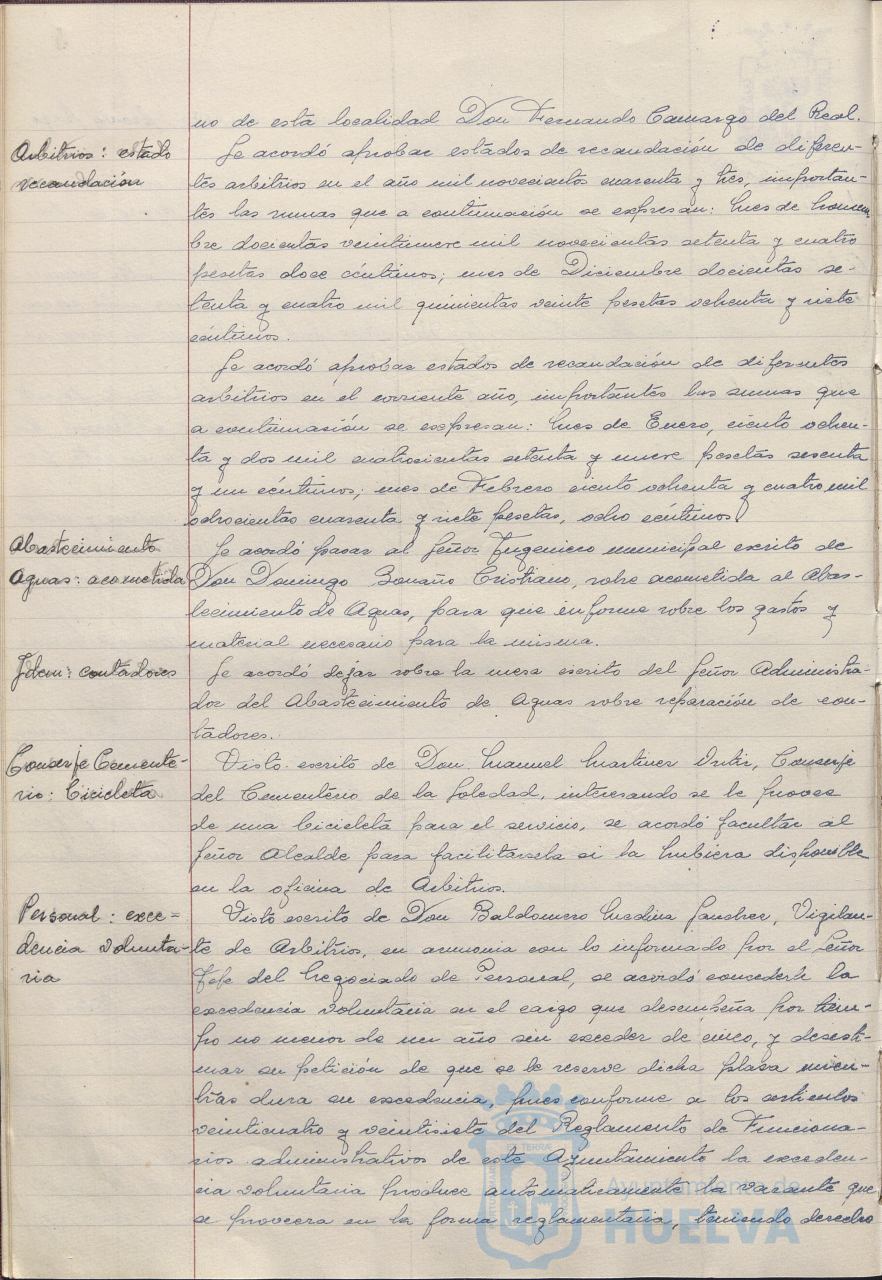 no de esta localidad Don Fernando Camargo del Real.
Arbitrios: estado
recaudación
Se acordó aprobar estados de recaudación de diferen-
tes arbitrios en el año mil novecientos cuarenta y tres, importan-
tes las sumas que a continuación se expresan: Mes de Noviem-
bre docientas veintinueve mil novecientas setenta y cuatro
pesetas doce céntimos; mes de Diciembre docientas se-
tenta y cuatro mil quinientas veinte pesetas ochenta y siete
céntimos.
Se acordó aprobar estados de recaudación de diferentes
arbitrios en el corriente año, importantes las sumas que
a continuasión se expresan: Mes de Enero, ciento ochen-
ta y dos mil cuatrocientas setenta y nueve pesetas sesenta
y un céntimos; mes de Febrero ciento ochenta y cuatro mil
ochocientas cuarenta y siete pesetas, ocho céntimos.
Abastecimiento
Aguas: acometida
Se acordó pasar al Señor Ingeniero municipal escrito de
Don Domingo Bonaño Cristiano, sobre acometida al Abas-
tecimiento de Aguas, para que informe sobre los gastos y
material necesario para la misma.
Idem: contadores
Se acordó dejar sobre la mesa escrito del Señor Administra-
dor del Abastecimiento de Aguas sobre reparación de con-
tadores.
Conserje Cemente-
rio: bicicleta
Visto escrito de Don Manuel Martinez Ortiz, Conserje
del Cementerio de la Soledad, interesando se le provea
de una bicicleta para el servicio, se acordó facultar al
Señor Alcalde para facilitársela si la hubiera disponible
en la oficina de Arbitrios.
Personal: exce=
dencia volunta-
ria
Visto escrito de Don Baldomero Medina Sanchez, Vigilan-
te de Arbitrios, en armonia con lo informado por el Señor
Jefe del Negociado de Personal, se acordó concederle la
excedencia voluntaria en el cargo que desempeña por tiem-
po no menor de un año sin exceder de cinco, y desesti-
mar su petición de que se le reserve dicha plaza mien-
tras dura su excedencia, pues conforme a los articulos
veinticuatro y veintisiete del Reglamento de Funciona-
rios administrativos de este Ayuntamiento la exceden-
cia voluntaria produce automaticamente la vacante que
se proveera en la forma reglamentaria, teniendo derecho
Ayuntamiento de
HUELVA